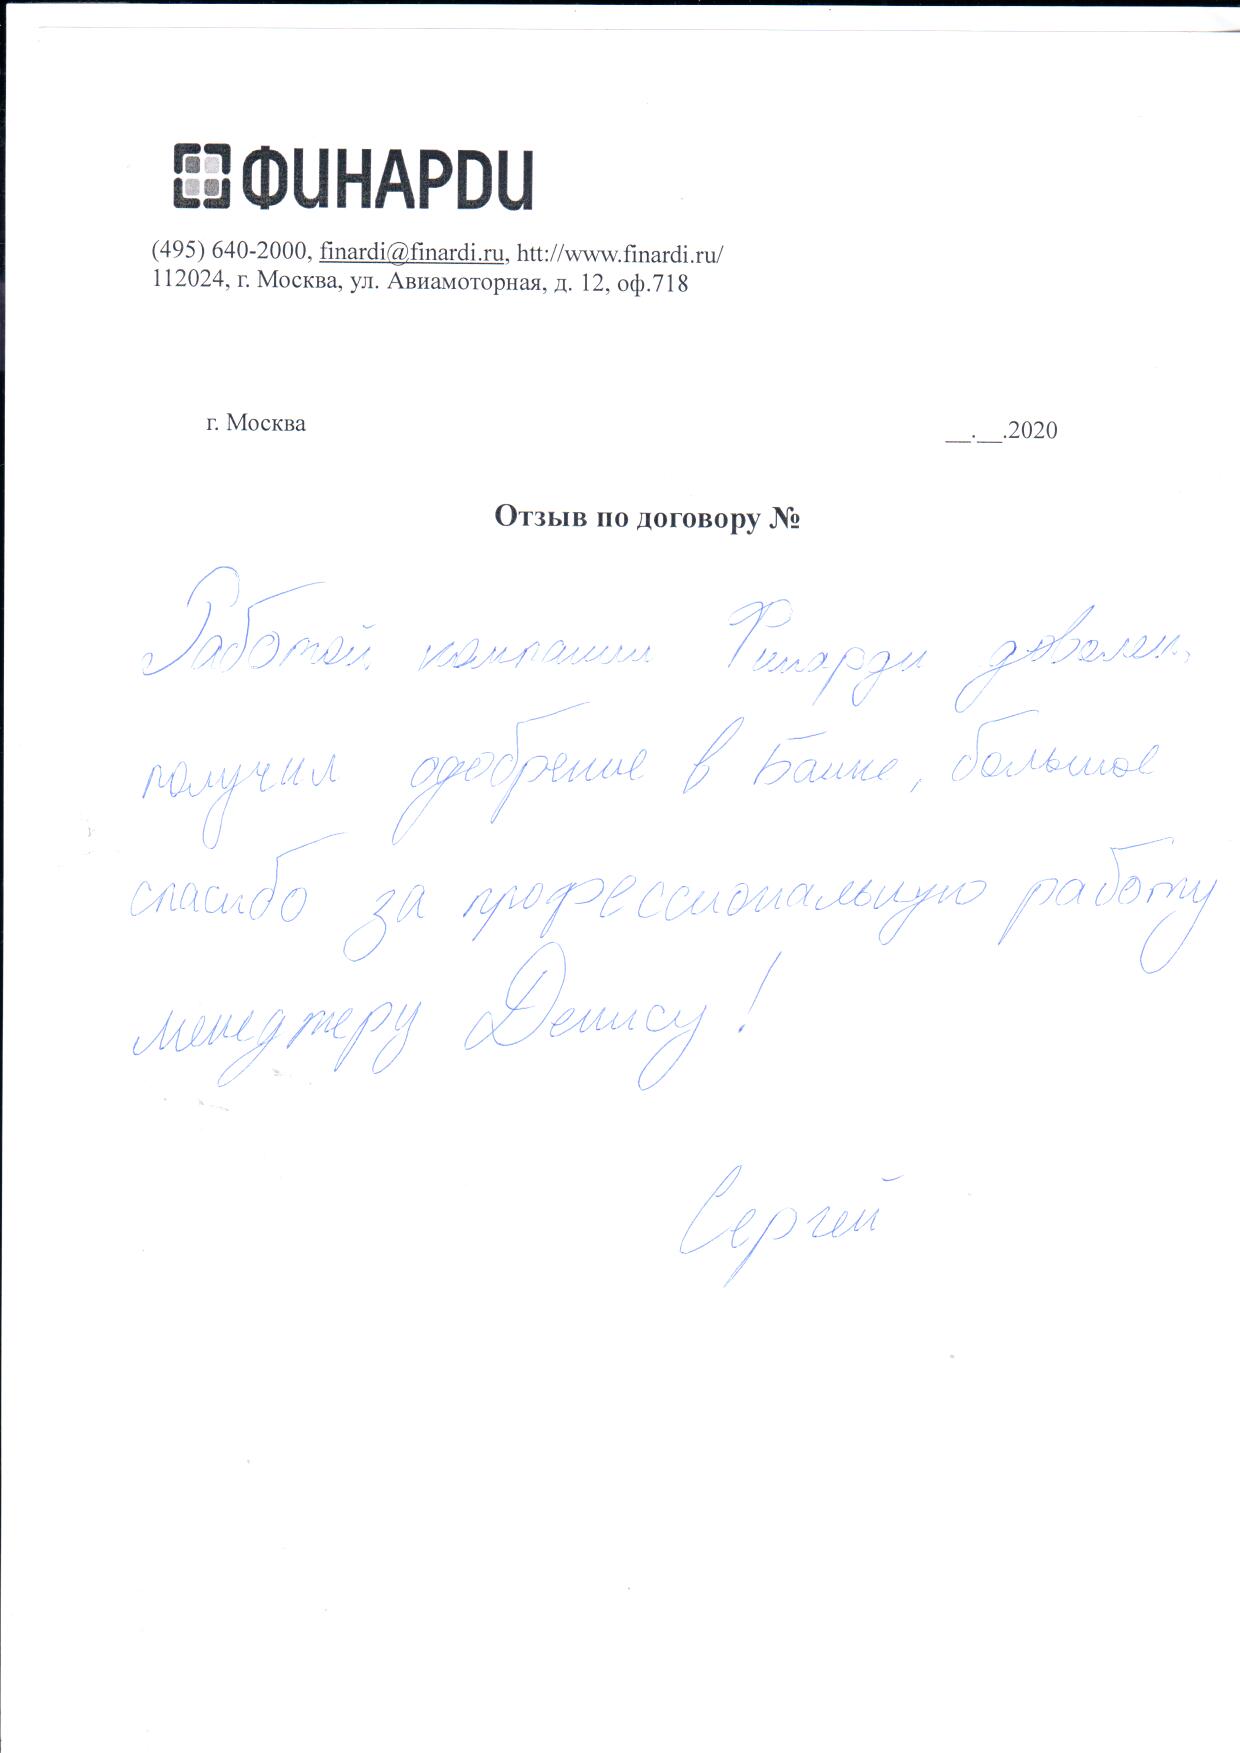 ФИНАРДИ
(495) 640-2000, finardi@finardi.ru, htt://www.finardi.ru/
112024, г. Москва, ул. Авиамоторная, д. 12, оф.718
г. Москва
__.__.2020
Отзыв по договору №
Работой компании Финарди доволен,
получил одобрение в Банке, большое
спасибо за профессиональную работу
менеджеру Денису!
Сергей